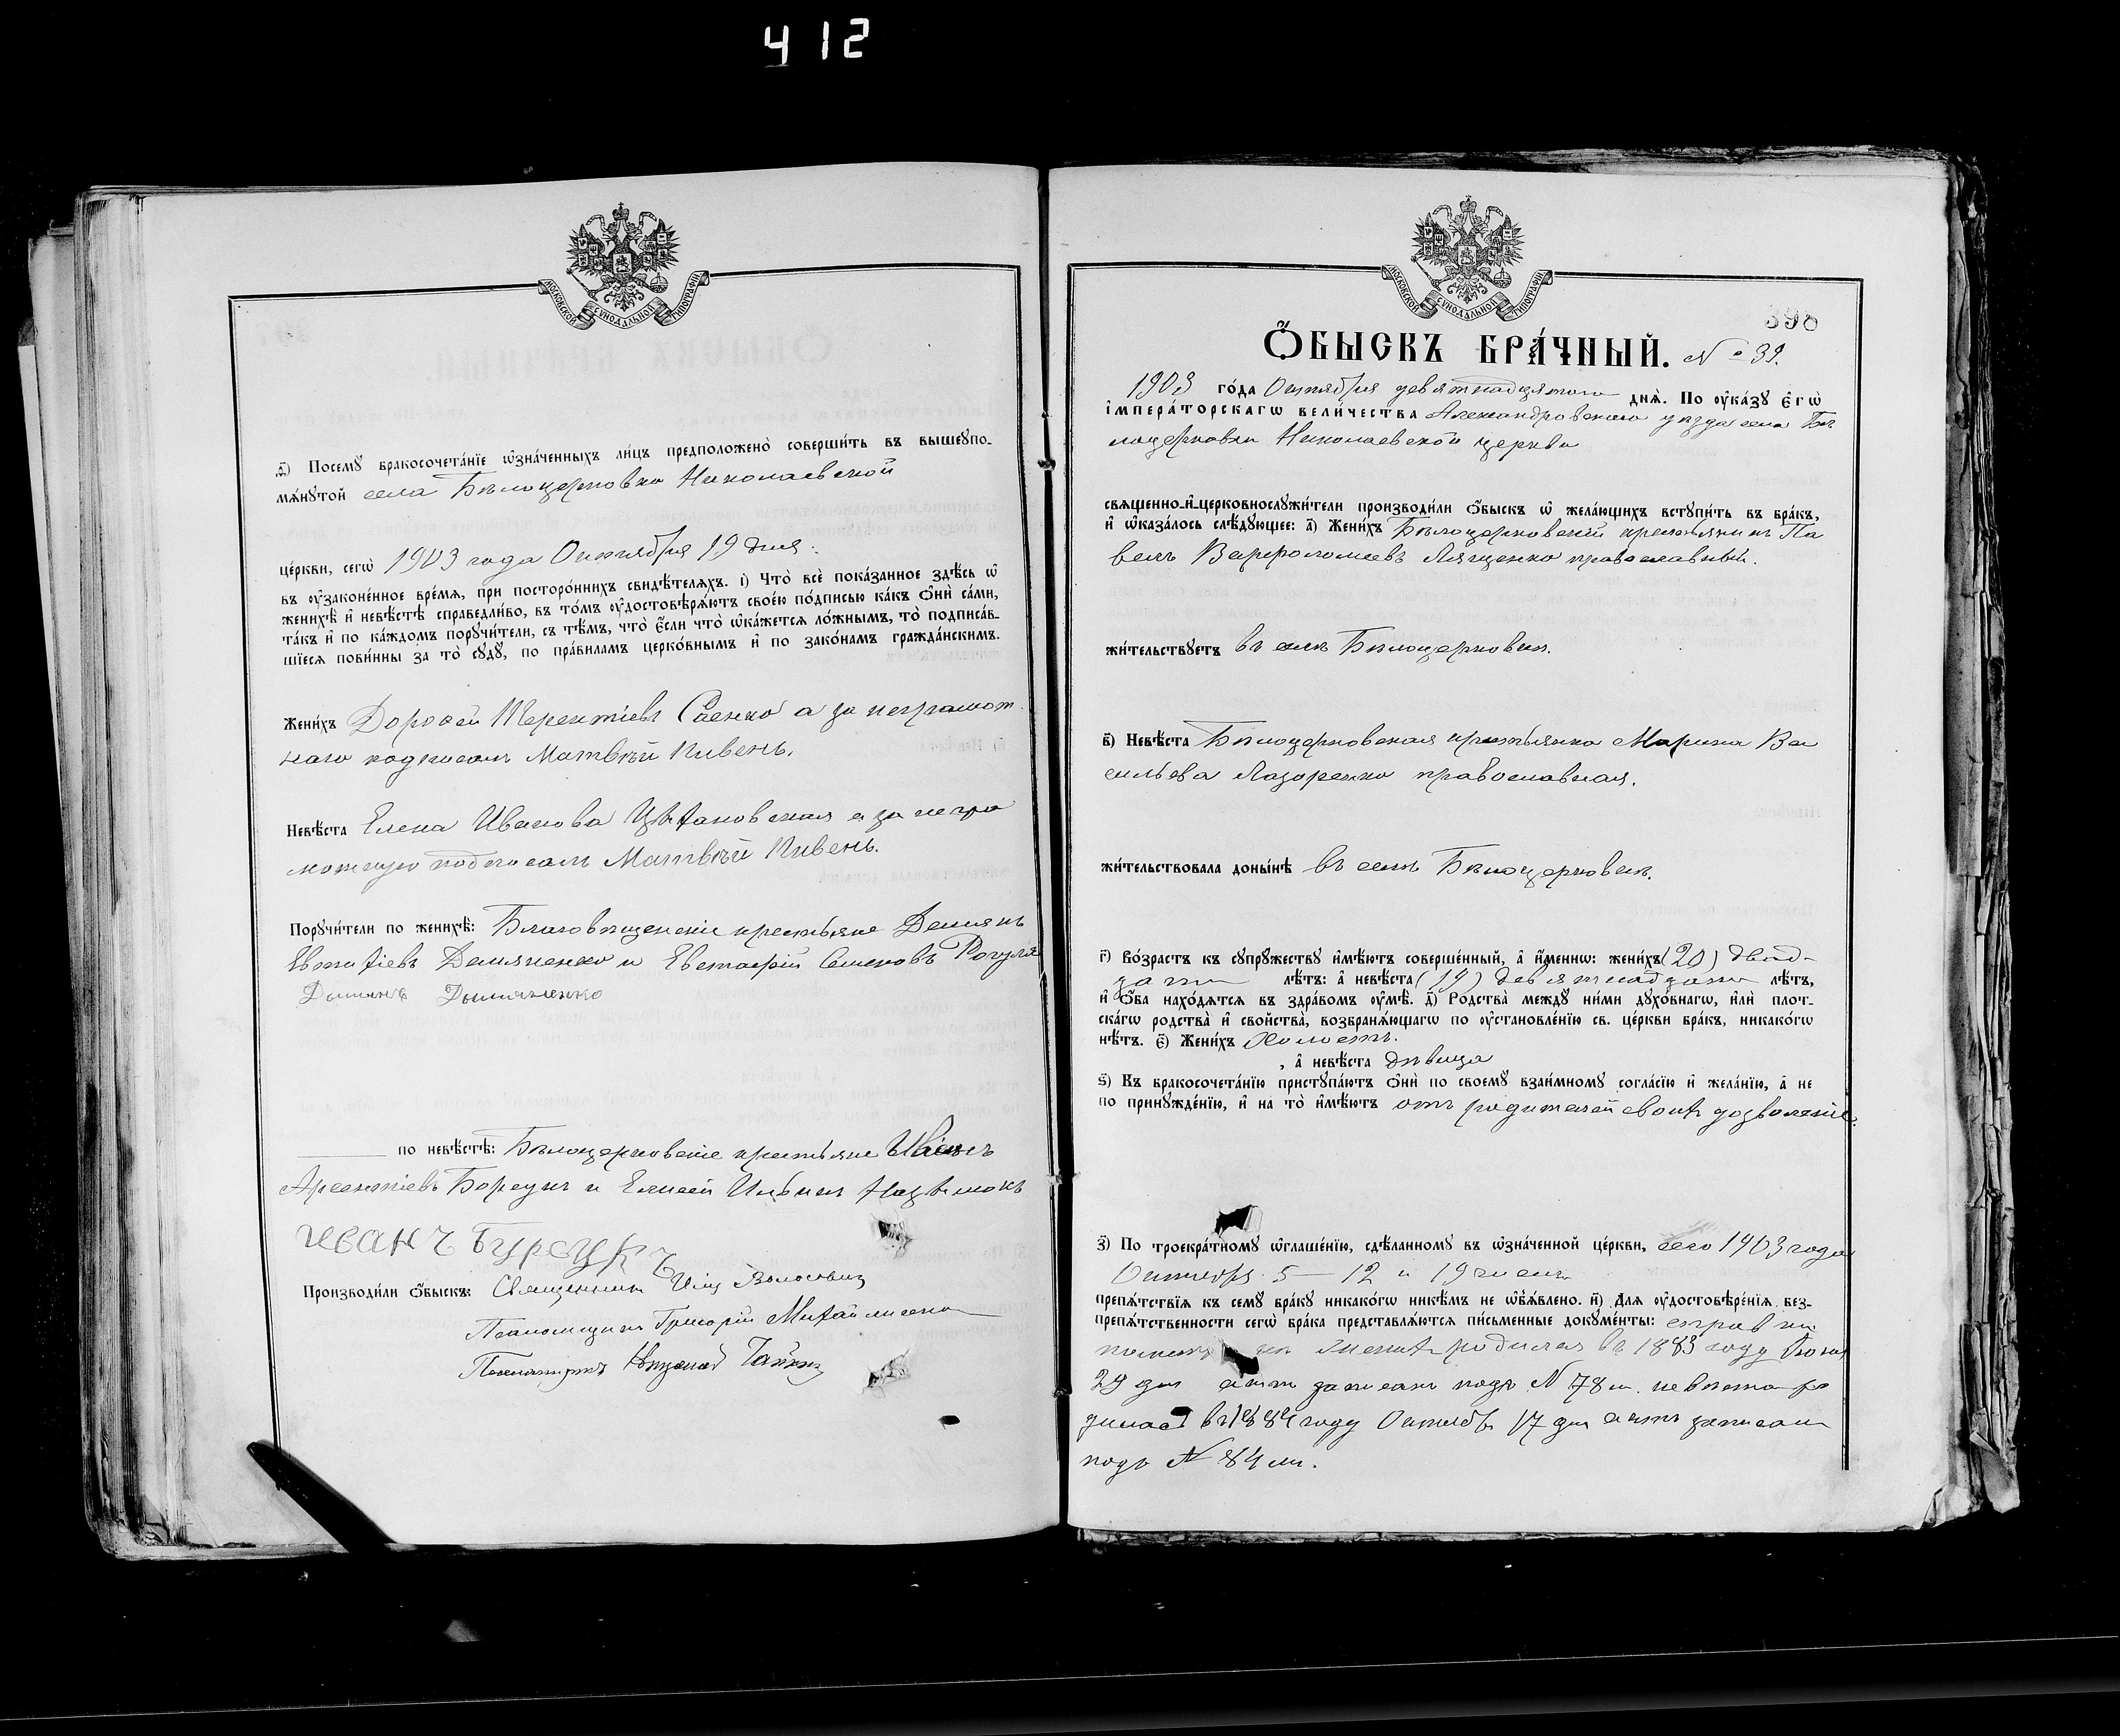 412
МОСКОВСКОЙ СѴНОДАЛЬНОЙ ТИПОГРАФІИ
д҃) Посемꙋ бракосочета́нїе ѡ҆зна́ченныхъ ли́цъ предположено̀ соверши́ть въ вышеꙋпо-
мѧ́нꙋтой села Бѣлоцерковки Николаевской
це́ркви, сегѡ̀ 1903 года Октября 19 дня.
въ ᲂу҆зако́ненное вре́мѧ, при посторо́ннихъ свидѣ́телѧхъ. і҃) Что̀ всѐ пока́занное здѣ́сь ѡ҆
женихѣ̀ и҆ невѣ́стѣ справедли́во, въ то́мъ ᲂу҆достовѣрѧ́ютъ свое́ю по́дписью ка́къ ѻ҆нѝ са́ми,
та́къ и҆ по ка́ждомъ порꙋчи́тели, съ тѣ́мъ, что̀ є҆́сли что̀ ѡ҆ка́жетсѧ ло́жнымъ, то̀ подписа́в-
шїесѧ пови́нны за то̀ сꙋдꙋ̀, по пра́виламъ церко́внымъ и҆ по зако́намъ гражда́нскимъ.
Жени́хъ Дорофей Терентіевъ Саенко а за неграмот
наго подписалъ Матвѣй Кивень.
Невѣ́ста Елена Иванова Цѣхановская а за негра
мотную подписалъ Матвѣй Кивень.
Порꙋчи́тели по женихѣ̀: Благовѣщенскіе крестьяне Демянъ
Евтихіевъ Демяненко и Евстафій Семеновъ Рогуля
Демянъ Демяненко
по невѣ́стѣ: Бѣлоцерковскіе крестьяне Иванъ
Арсентіевъ Борсукъ и Елисей Ильинъ
иванъ Бурсукъ
Производи́ли ѻ҆́быскъ: Священникъ
Псаломщикъ Григорій Михайличенко
Псаломщикъ
МОСКОВСКОЙ СѴНОДАЛЬНОЙ ТИПОГРАФІИ
398
Ѻ҆́БЫСКЪ БРА́ЧНЫЙ. № 39.
1903 го́да Октября девятнадцятого днѧ̀. По ᲂу҆ка́зꙋ є҆гѡ̀
і҆мпера́торскагѡ вели́чества Александровского уѣзда села Бѣ
лоцерковки Николаевской церкви
свѧще́нно-и҆-церковнослꙋжи́тели производи́ли ѻ҆́быскъ ѡ҆ жела́ющихъ встꙋпи́ть въ бра́къ,
и҆ ѡ҆каза́лось слѣ́дꙋющее: а҃) Жени́хъ Бѣлоцерковскій крестьянинъ Па
велъ Варфоломеевъ Лященко православный.
жи́тельствꙋетъ въ селѣ Бѣлоцерковкѣ.
в҃) Невѣ́ста Бѣлоцерковская крестьянка Марина Ва
сильева Лазоренко православная.
жи́тельствовала доны́нѣ въ селѣ Бѣлоцерковкѣ.
г҃) Во́зрастъ къ сꙋпрꙋ́жествꙋ и҆мѣ́ютъ соверше́нный, а҆ и҆́меннѡ: жени́хъ (20) двад-
цати лѣ́тъ: а҆ невѣ́ста (19) девятнадцати лѣ́тъ,
и҆ ѻ҆́ба нахо́дѧтсѧ въ здра́вомъ ᲂу҆мѣ̀. д҃) Родства̀ междꙋ̀ ни́ми дꙋхо́внагѡ, и҆лѝ плот-
ска́гѡ родства̀ и҆ сво́йства, возбранѧ́ющагѡ по ᲂу҆становле́нїю св. це́ркви бра́къ, никако́гѡ
нѣ́тъ. є҃) Жени́хъ Холостъ.
, а҆ невѣ́ста дѣвица
ѕ҃) Къ бракосочета́нїю пристꙋпа́ютъ ѻ҆нѝ по своемꙋ̀ взаи́мномꙋ согла́сїю и҆ жела́нїю, а҆ не
по принꙋжде́нїю, и҆ на то̀ и҆мѣ́ютъ отъ родителей своихъ дозволеніе.
з҃) По троекра́тномꙋ ѡ҆глаше́нїю, сдѣ́ланномꙋ въ ѡ҆зна́ченной це́ркви, сего 1903 года
Октября 5 — 12 и 19 чиселъ
препѧ́тствїѧ къ семꙋ̀ бра́кꙋ никако́гѡ никѣ́мъ не ѡ҆б̾ѧ́влено. и҃) Длѧ ᲂу҆достовѣре́нїѧ без-
препѧ́тственности сегѡ̀ бра́ка представлѧ́ютсѧ пи́сьменные докꙋме́нты:
женихъ родился въ 1883 году Іюня
29 дня актъ записанъ подъ № 78 м. невѣста ро
дилась въ 1884 году Октября 17 дня актъ записанъ
подъ № 84 м.